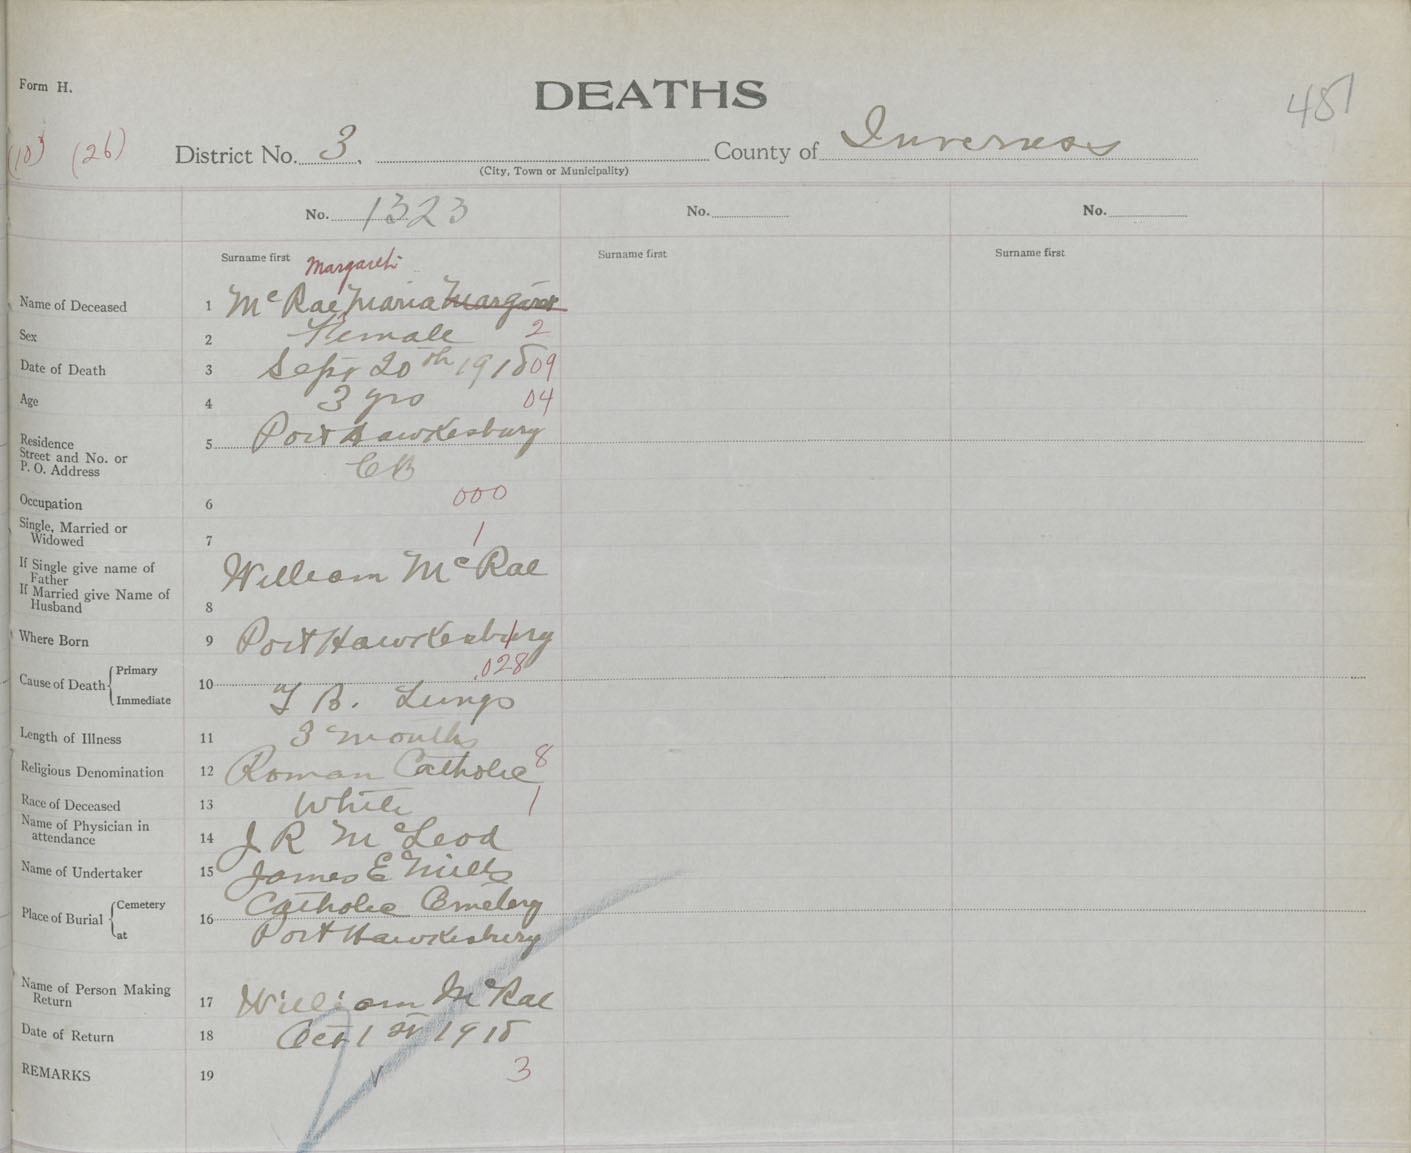 Form H.
DEATHS
451
(10) (26) District No. 3. County of Inverness
(City, Town or Municipality)
No. 1323 No. No.
Surname first Surname first Surname first
Margaret
Name of Deceased 1 McRae Maria Margaret
Sex 2 Female 2
Date of Death 3 Sept 20th 1918 09
Age 4 3 yrs 04
Residence
Street and No. or
P. O. Address
5 Port Hawkesbury
C B
Occupation 6 000
Single, Married or
Widowed 7 1
If Single give name of
Father
If Married give Name of
Husband 8
William McRae
Where Born 9 Port Hawkesbury 1
Cause of Death Primary Immediate 10 .028
T B. Lungs
Length of Illness 11 3 months
Religious Denomination 12 Roman Catholic 8
Race of Deceased 13 White 1
Name of Physician in
attendance 14 J R McLeod
Name of Undertaker 15 James E Mills
Place of Burial Cemetery at 16 Catholic Cemetery
Port Hawkesbury
Name of Person Making
Return 17 William McRae
Date of Return 18 Oct 1st 1918
REMARKS 19 3